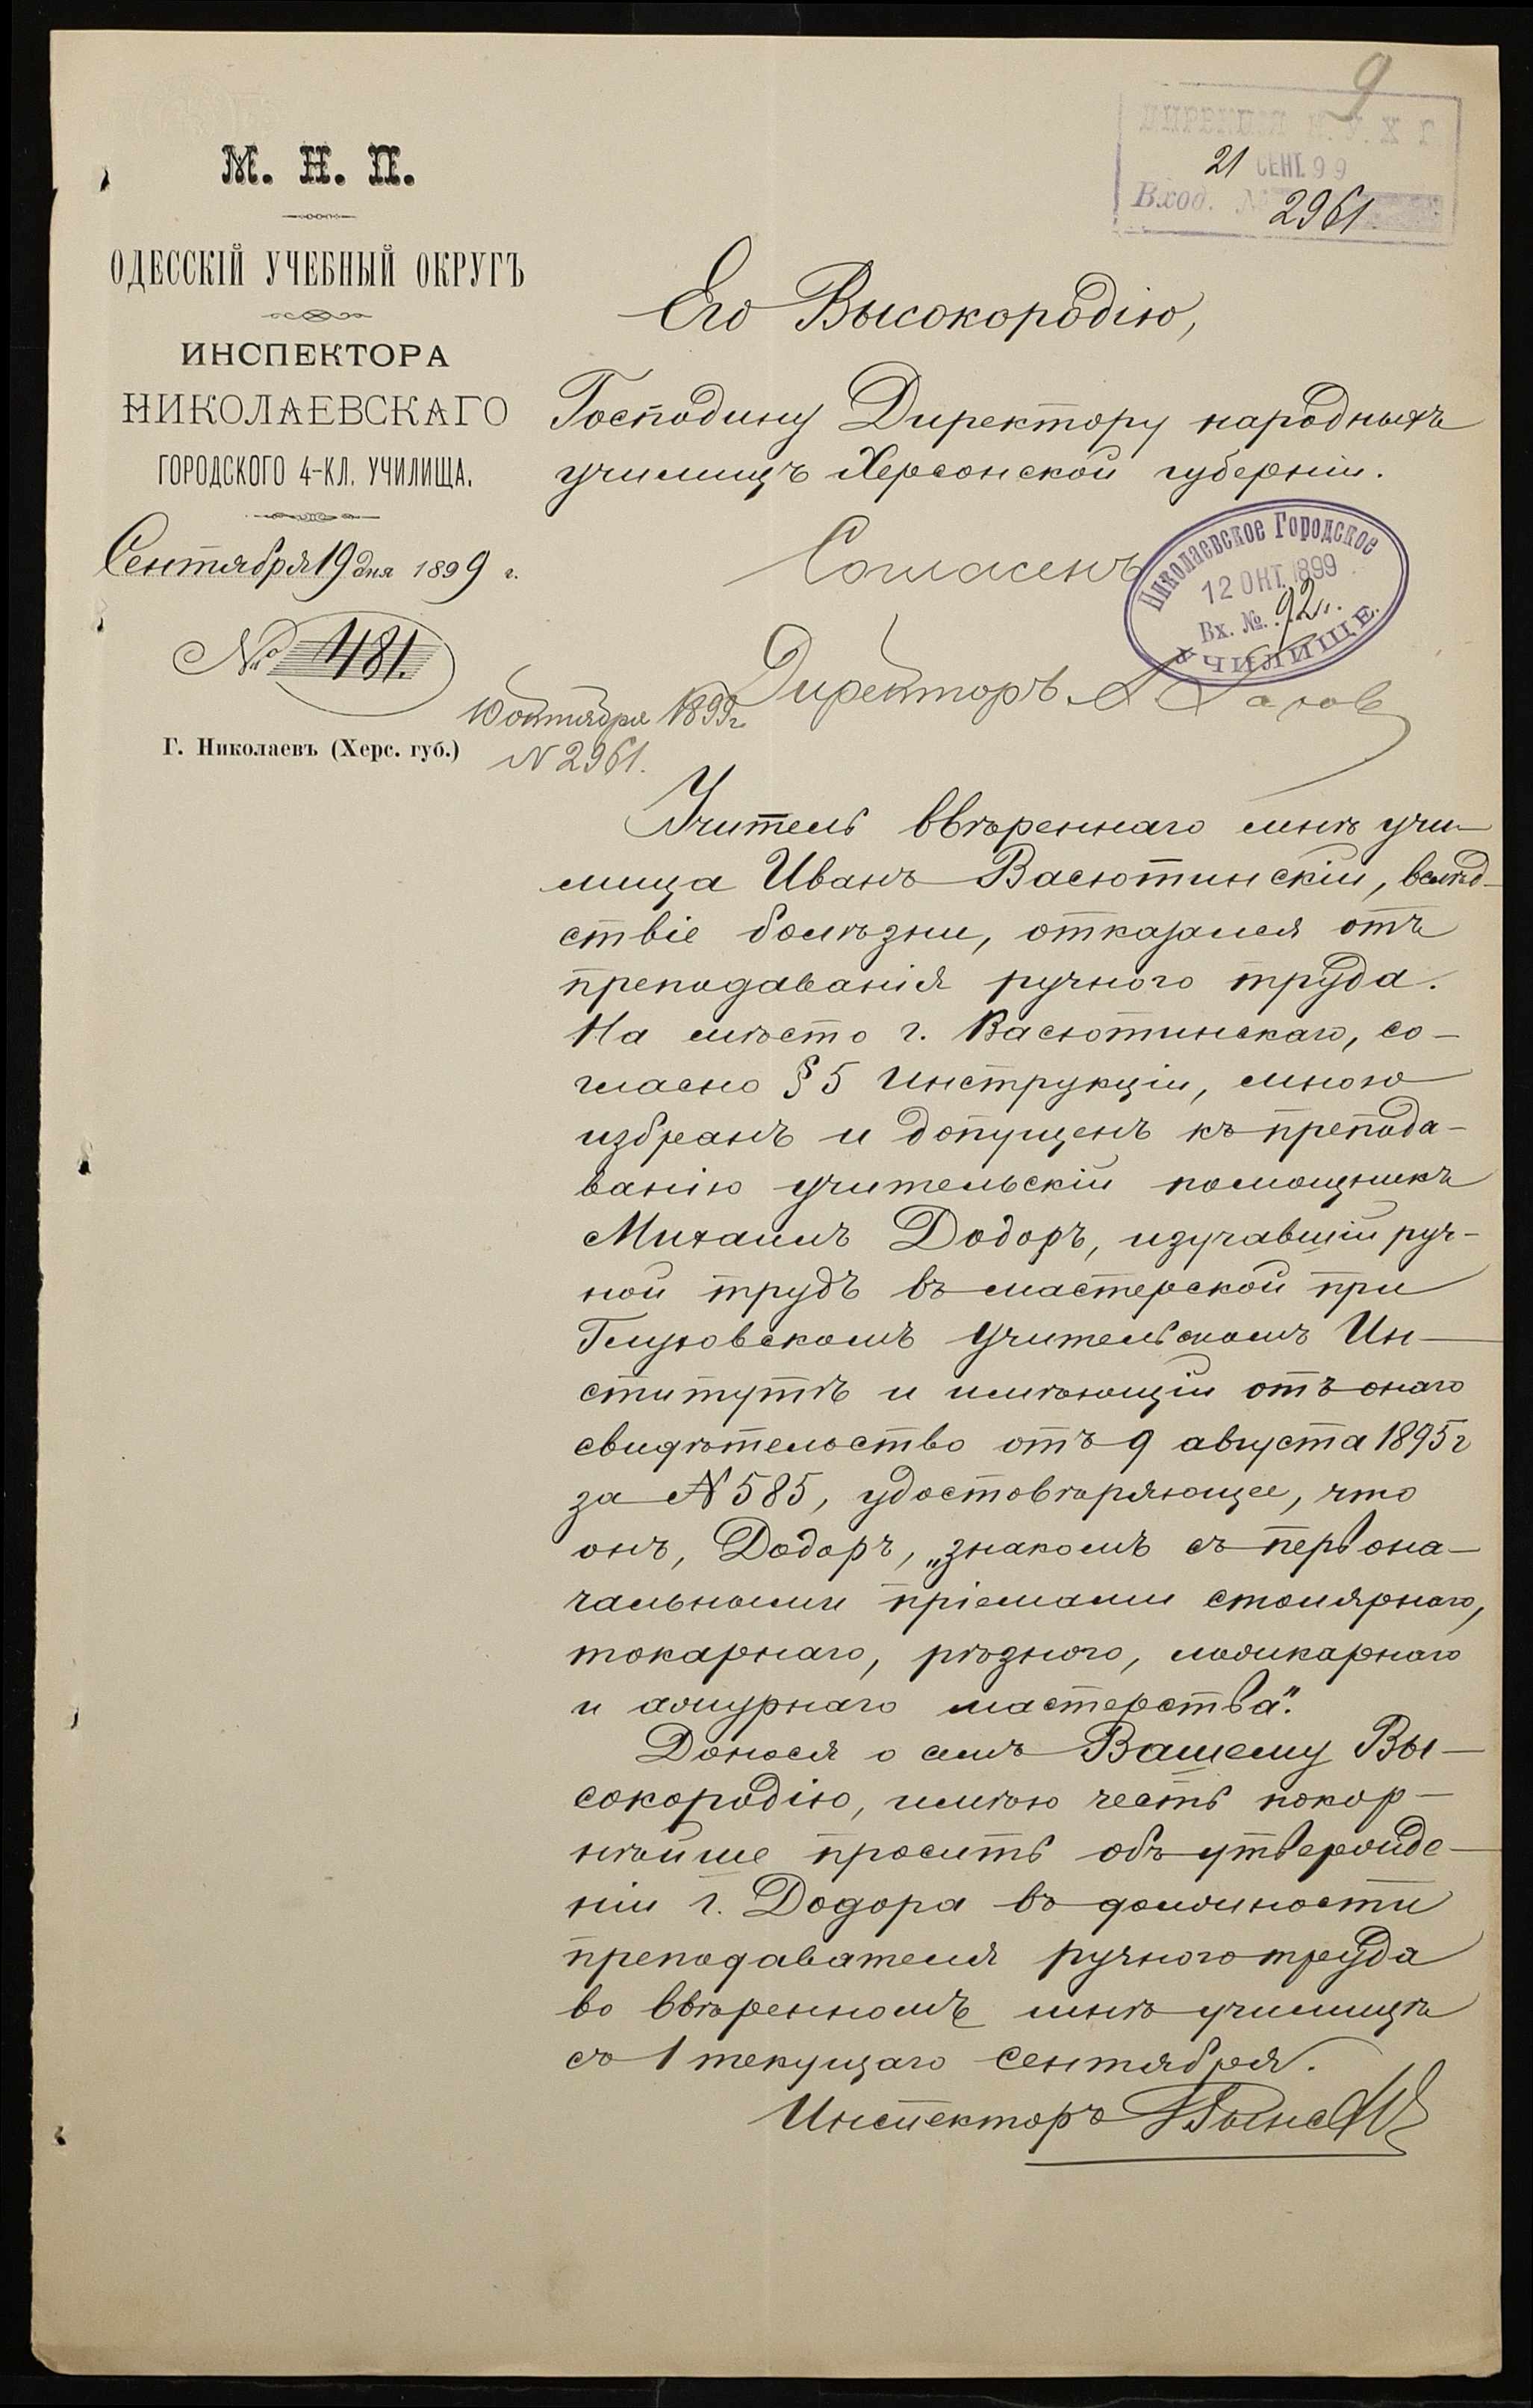 9
ДИРЕКЦІЯ Н. У. Х. Г.
21 СЕНТ. 99
Вход. № 2961
М. Н. П.
ОДЕССКІЙ УЧЕБНЫЙ ОКРУГЪ
ИНСПЕКТОРА
НИКОЛАЕВСКАГО
ГОРОДСКОГО 4-КЛ. УЧИЛИЩА.
Сентября 19 дня 1899 г.
№ 481.
Г. Николаевъ (Херс. губ.)
Его Высокородію,
Господину Директору народныхъ
училищъ Херсонской губерніи.
Согласенъ
Николаевское Городское
12 ОКТ. 1899
Вх. №. 92
УЧИЛИЩЕ.
Директоръ
10 октября 1899 г.
N 2961.
Учитель ввѣреннаго мнѣ учи-
лища Иванъ Васютинскій, вслѣд-
ствіе болѣзни, отказался отъ
преподаванія ручного труда.
На мѣсто г. Васютинскаго, со-
гласно § 5 Инструкціи, мною
избранъ и допущенъ къ препода-
ванію учительскій помощникъ
Михаилъ Додоръ, изучавшій руч-
ной трудъ въ мастерской при
Глуховскомъ Учительскомъ Ин-
ститутѣ и имѣющій отъ онаго
свидѣтельство отъ 9 августа 1895 г
за N 585, удостовѣряющее, что
онъ, Додоръ, „знакомъ съ первона-
чальными пріемами столярнаго,
токарнаго, рѣзного, ложкарнаго
и ажурнаго мастерства".
Донося о семъ Вашему Вы-
сокородію, имѣю честь покор-
нѣйше просить объ утвержде-
ніи г. Додора въ должности
преподавателя ручного труда
во ввѣренномъ мнѣ училищѣ
съ 1 текущаго сентября.
Инспекторъ